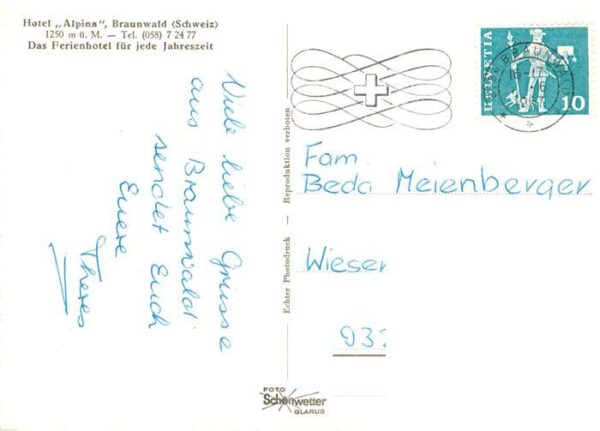 Hotel „Alpina", Braunwald (Schweiz)
1250 m ü. M. — Tel. (058) 7 24 77
Das Ferienhotel für jede Jahreszeit
Viele liebe Grüsse
aus Braunwald
sendet Euch
Euere
Theres
Echter Photodruck — Reproduktion verboten
HELVETIA
10
BRAUNWALD
Fam.
Beda Meienberger
Wieser
93
FOTO
Schönwetter
GLARUS